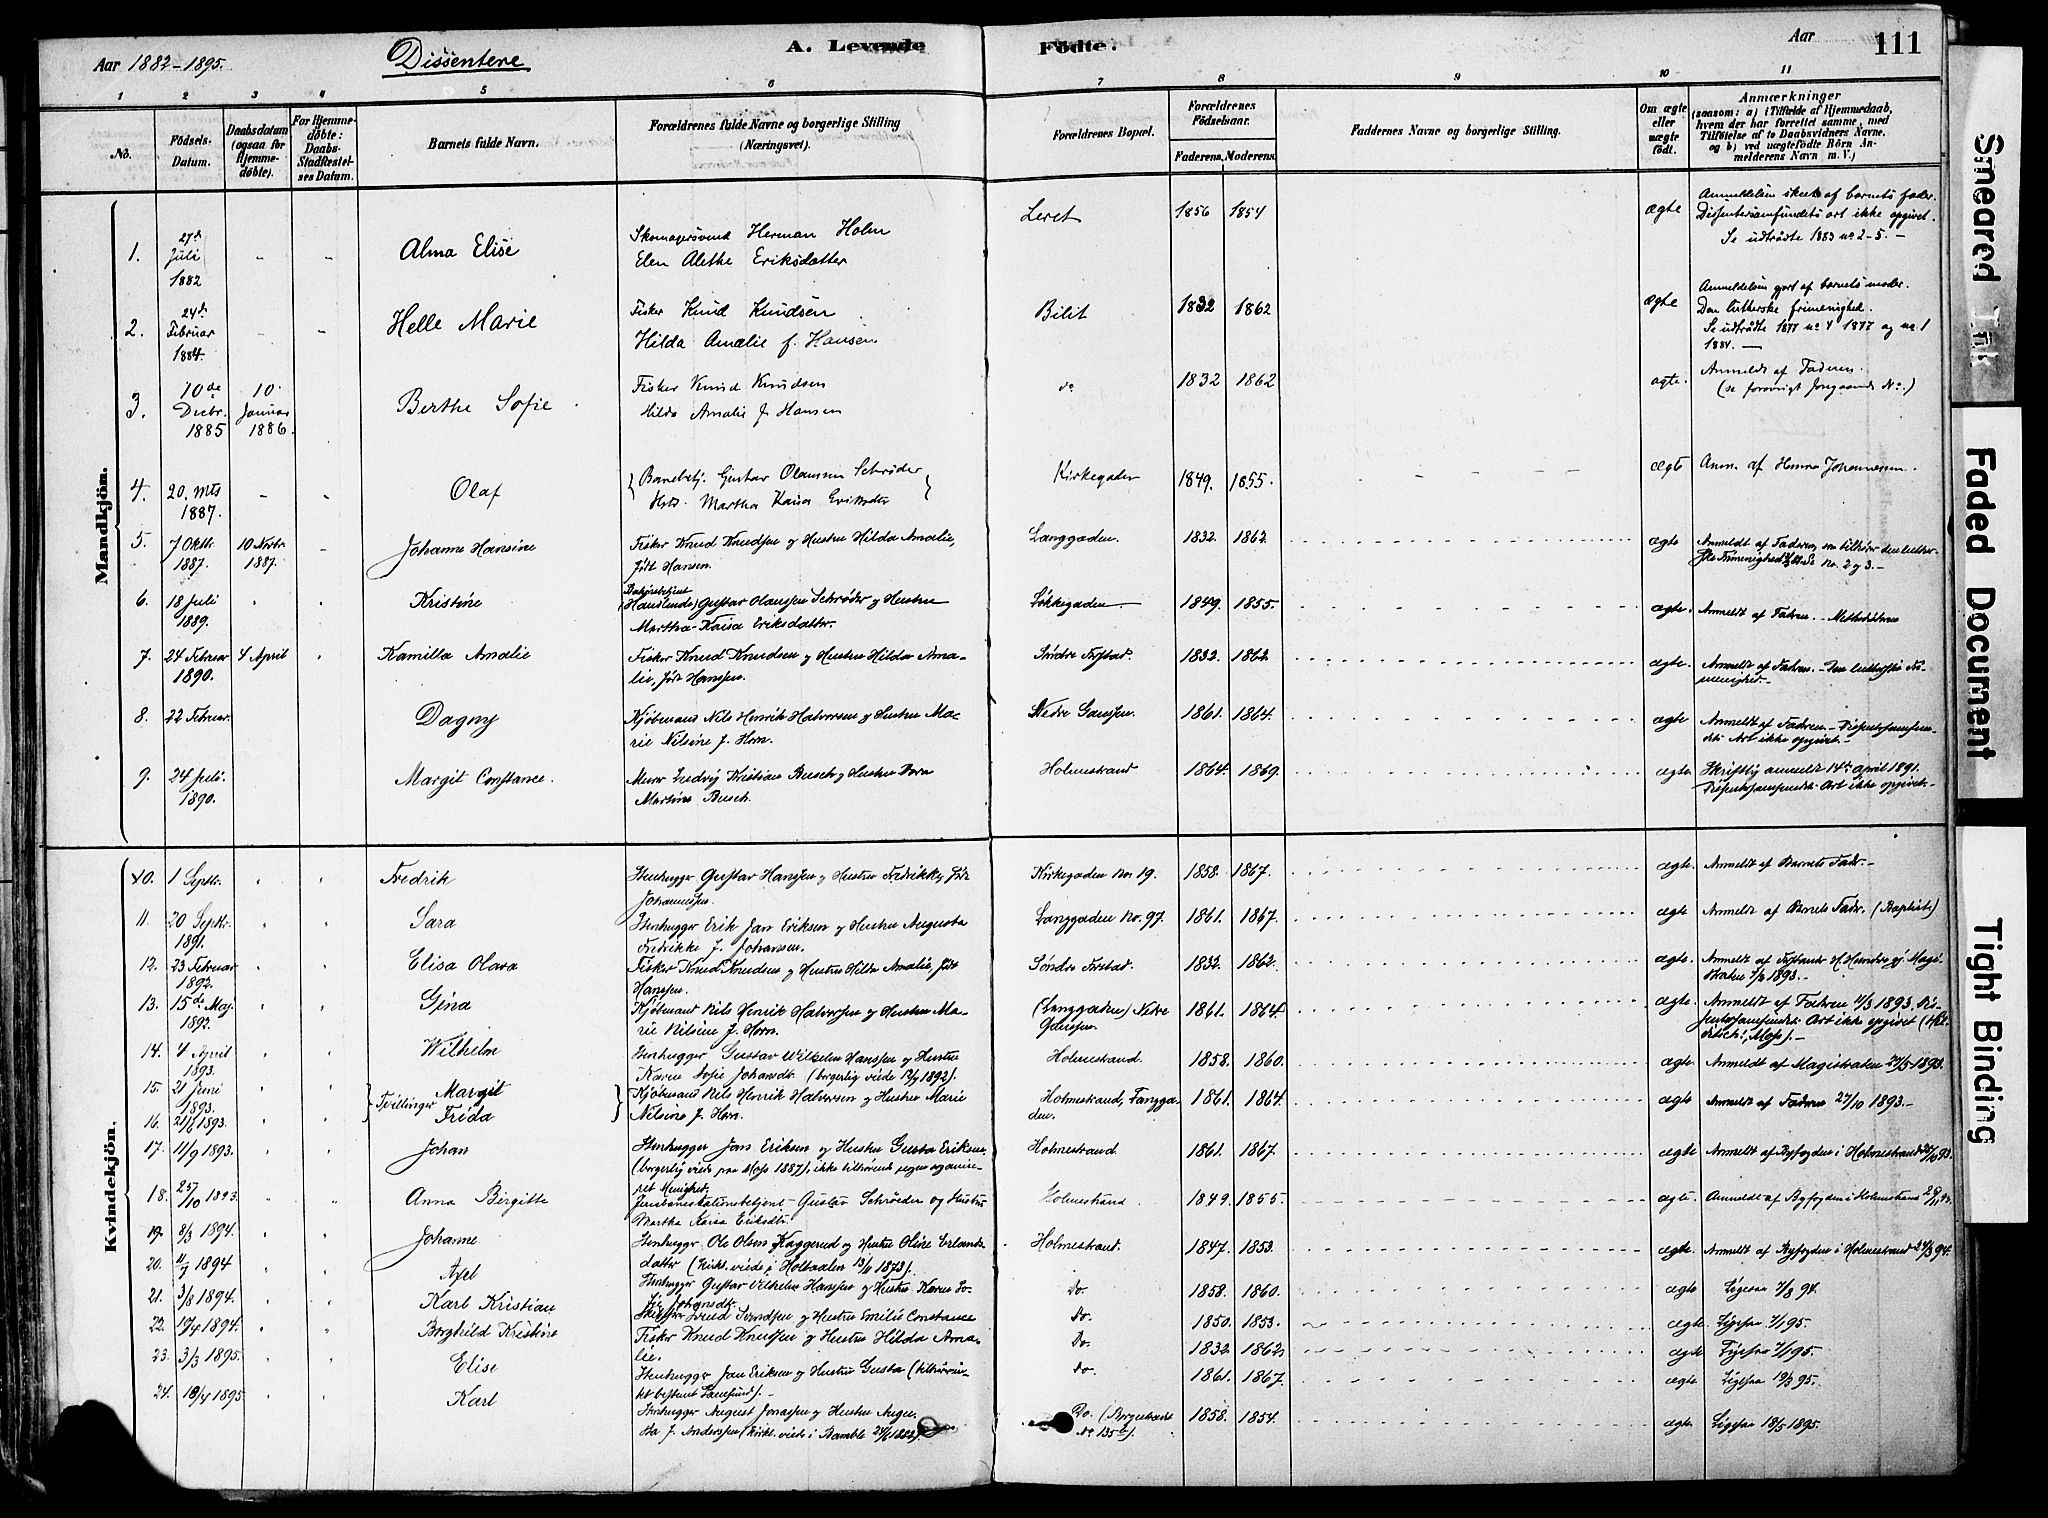 Aar 1882-1895.
Dissentere
A. Levende Fødte.
Aar
111
1 2 3 4 5 6 7 8 9 10 11
No.
Fødsels-Datum.
Daabsdatum (ogsaa for Hjemme-døbte).
For Hjemme-døbte: Daabs-Stadfæstel-ses Datum.
Barnets fulde Navn.
Forældrenes fulde Navne og borgerlige Stilling (Næringsvei).
Forældrenes Bopæl.
Forældrenes Fødselsaar.
Faderens. Moderens.
Faddernes Navne og borgerlige Stilling.
Om ægte eller uægte født.
Anmærkninger
(saasom: a) i Tilfælde af Hjemmedaab,
hvem der har forrettet samme, med
Tilføielse af to Daabsvidners Navne,
og b) ved uægtefødte Børn An-
melderens Navn m. V.)
Mandkjøn.
1. 27de Juli 1882 Alma Elise Skomagersvend Herman Holm Elen Alethe Eriksdatter Leret 1856 1854 ægte Anmeldelsen skeet af barnets fader. Dissentersamfundets art ikke opgivet. Se udtrådte 1883 no 2-5. -
2. 24de Februar 1884. Helle Marie Fisker Knud Knudsen Hilda Amalie f. Hansen Bilit 1832 1862 ægte Anmeldelsen gjort af barnets moder. Den lutherske frimenighed. Se udtrådte 1877 no 4 1877 og no 1 1884. -
3. 10de Decbr. 1885 10 Januar 1886. Berthe Sofie Fisker Knud Knudsen Hilda Amalie f. Hansen do 1832 1862 ægte. Anmeldt af Faderen. (se forrigt No.)
4. 20. Mts 1887. Olaf Banebetj. Gustav Olaussen Schrøder Hstr. Martha Kaisa Eriksdtr Kirkegaden 1849. 1855. ægte Anm. af Johannessen.
5. 7 Oktbr. 1887. 10 Novbr. 1887. Johanne Hansine Fisker Knud Knudsen og Hustru Hilda Amalie, født Hansen. Langgaden. 1832. 1862. ægte Anmeldt af Faderen, som tilhører den luther-ske Frimenighed. Se no. 2 og 3. -
6. 18 Juli 1889. Kristine (Handlende) Gustav Olaussen Schrøder og Hustru Martha Kaisa Eriksdatter. 1849. 1855. ægte. Anmeldt af Fadren. - Methodisterne
7. 24 Februar 1890. 4 April Kamilla Amalie Fisker Knud Knudsen og Hustru Hilda Ama-lie, født Hanssen. Søndre 1832. 1862. ægte. Anmeldt af Fadren. - Den lutherske Fri-menighed. -
8. 22 Februar. Dagny Kjøbmand Nils Henrik Halvorsen og Hustru Ma-rie Nilsine f. Horn. Nedre 1861. 1864. ægte Anmeldt af Fadren. - Dissentersamfun-dets Art ikke opgivet. -
9. 24 Juli 1890. Margit Constance. Murer Ludvig Kristian Busch og Hustru Martine Busch. Holmestrand 1864. 1869. ægte. Skriftlig anmeldt 14de april 1891. Dissentersamfundets Art ikke opgivet. -
Kvindekjøn.
10. 1 Septbr. Fredrik Stenhugger Gustav Hanssen og Hustru Fredrikke, født Johannessen. Kirkegaden No. 19. 1858. 1867. ægte Anmeldt af Barnets Fadr. -
11. 20 Septbr. 1891. Sara Stenhugger Erik Jan Eriksen og Hustru Augusta Fredrikke f. Johansen. Langgaden No. 97. 1861. 1867. ægte. Anmeldt af Barnets Fadr. (Baptist)
12. 23 Februar 1892. Elisa Olava Fisker Knud Knudsen og Hustru Hilda Amalie, født Hanssen. Søndre 1832. 1862. ægte. Anmeldt af 1893. -
13. 15de Maj 1892. Gina Kjøbmand Nils Henrik Halvorsen og Hustru Ma-rie Nilsine f. Horn. (Langgaden) Nedre 1861. 1864. ægte. Anmeldt af Fadren 11/3 1893. Dis-sentersamfundets Art ikke opgivet
14. 4 April 1893. Wilhelm Stenhugger Gustav Wilhelm Hanssen og Hustru Karen Sofie Johansdt. (borgerlig viede 1892). Holmestrand. 1858. 1860. ægte Anmeldt af Magistraten 27/5 1893.
15. 21 Juni 1893. Tvillinger Margit
16. 21/6 1893. Frida Kjøbmand Nils Henrik Halvorsen og Hustru Marie Nilsine f. Horn. Holmestrand, Langga-den. 1861. 1864. ægte Anmeldt af Fadren 27/10 1893. -
17. 11/9 1893. Johan Stenhugger Jan Eriksen og Hustru Gusta Eriksen (borgerlig viede paa Moss 1887), ikke tilhørende nogen organise-ret Menighed. Holmestrand 1861. 1867. ægte Anmeldt af Byfogden i Holmestrand
18. 25/10 1893. Anna Birgitte Jernbanestationsbetjent Gustav Schrøder og Hustru Martha Kaisa Eriksdtr. Holmestrand. 1849. 1855. ægte. Anmeldt af Byfogden i Holmestrand
19. 8/3 1894. Johanne Stenhuggr Ole Olsen Kaggerud og Hustru Oline Erlands-datter (Kirk. viede i 1873). Holmestrand. 1847. 1853. ægte. Anmeldt af Byfogden i Holmestrand 94.
20. 1894 Axel Stenhuggr Gustav Vilhelm Hanssen og Hustru Karen So-fie Johansdt. Do. 1858. 1860. ægte Ligesaa 94.
21. 3/8 1894. Karl Kristian og Hustru Emilie Constance Do. 1850. 1853. ægte Ligesaa 95.
22. 1894. Borghild Kristine Fisker Knud Knudsen og Hustru Hilda Ama-lie. Do. 1832 1862. ægte Ligesaa 95.
23. 3/3 1895. Elise Stenhuggr Jan Eriksen og Hustru Gusta (tilhører in-tet bestemt Samfund). - do. 1861. 1867. ægte Ligesaa 95.
24. 18/4 1895. Karl Stenhuggr August Jonassen og Hustru Augus-ta f. Anderssen (Kirkl. viede i Bamble 1882). Do. No 135 1858. 1854. ægte. Ligesaa 18/5 1895.
Smeared Ink
Faded Document
Tight Binding